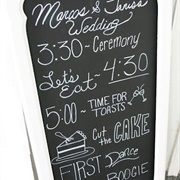 Marcos &
Wedding
3:30 ~ Ceremony
Let's
Eat ~ 4:30
5:00 ~ TIME FOR
TOASTS
Cut the
CAKE
FIRST Dance
BOOGIE